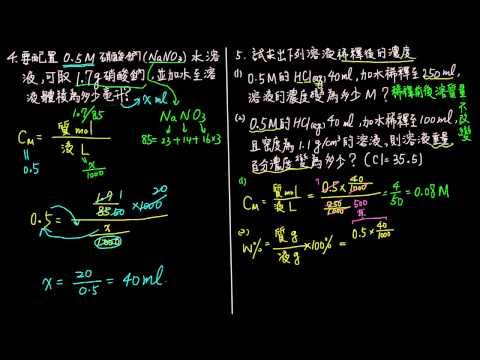 4.要配置 0.5M 硝酸鈉(NaNO3) 水溶
液,可取 1.7g 硝酸鈉,並加水至溶
液體積為多少毫升?
x ml
1.7/85
NaNO3
85=23+14+16×3
CM = 質 mol / 液 L
0.5
x/1000
0.5 =
20
×1000
x
1000
x = 20/0.5 = 40 ml.
5. 試求出下列溶液稀釋後的濃度
(1) 0.5M的 HCl(aq) 40ml,加水稀釋至 250ml,
溶液的濃度變為多少M? 稀釋前後溶質質量不改變
(2) 0.5M的 HCl(aq) 40ml,加水稀釋至 100ml,
且密度為 1.1g/cm³的溶液,則溶液重量
百分濃度變為多少? (Cl=35.5)
(1)
CM = 質mol / 液 L = 0.5 × 40/1000 / 250/1000 = 4/50 = 0.08 M
(2)
W% = 質 g / 液 g ×100% = 0.5 × 40/1000